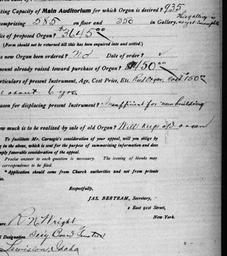 ating Capacity of Main Auditorium for which Organ is desired? 735
comprising 585 on floor and 250 in Gallery.
of proposed Organ? $3645.00
(Form should not be returned till this has been enquired into and settled)
new Organ been ordered? No Date of order?
mount already raised toward purchase of Organ? $1150.00
articulars of present Instrument, Age, Cost Price, Etc. Reed Organ, cost 150
about 6 yrs
eason for displacing present Instrument? Insufficient for new building
ow much is to be realized by sale of old Organ? Will keep
To facilitate Mr. Carnegie's consideration of your appeal, will you oblige
in the above, which is sent for the purpose of summarizing information and
favorable consideration of the appeal.
Precise answer to each question is necessary. The treating of blanks may
correspondence to be filed.
* Application should come from Church authorities and not from private
Respectfully,
JAS. BERTRAM, Secretary,
2 East 91st Street,
New York.
R N Wright
Designation Secy Board Trustees
Lewiston Idaho